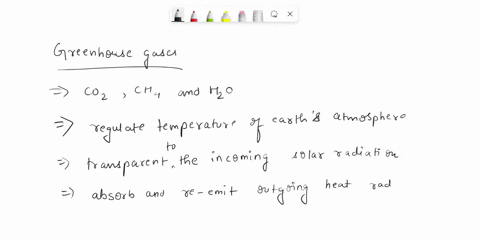 Greenhouse gases
⇒ CO2, CH4 and H2O
⇒ regulate temperature of earth's atmosphere
⇒ transparent to the incoming solar radiation
⇒ absorb and re-emit outgoing heat rad